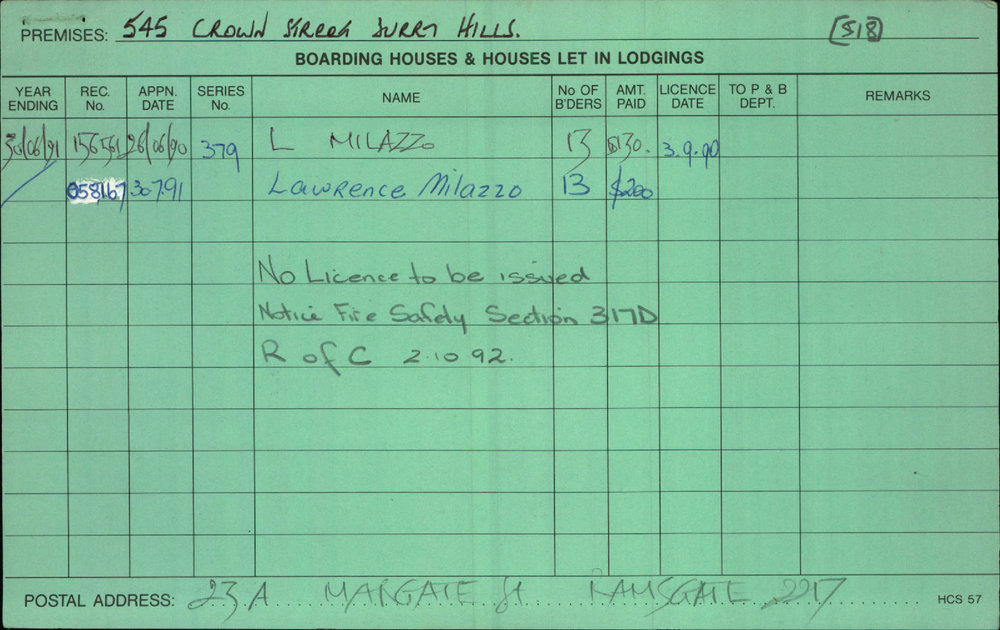 PREMISES: 545 CROWN STREET SURRY HILLS. (518)
BOARDING HOUSES & HOUSES LET IN LODGINGS
YEAR ENDING REC. No. APPN. DATE SERIES No. NAME No OF B'DERS AMT. PAID LICENCE DATE TO P & B DEPT. REMARKS
30/06/91 156561 26/06/90 379 L MILAZZO 13 $130. 3.9.90
058167 30791 Lawrence Milazzo 13 $200
No Licence to be issued
Notice Fire Safety Section 317D
R of C 2.10 92.
POSTAL ADDRESS: 23A MARGATE St RAMSGATE 2217 HCS 57